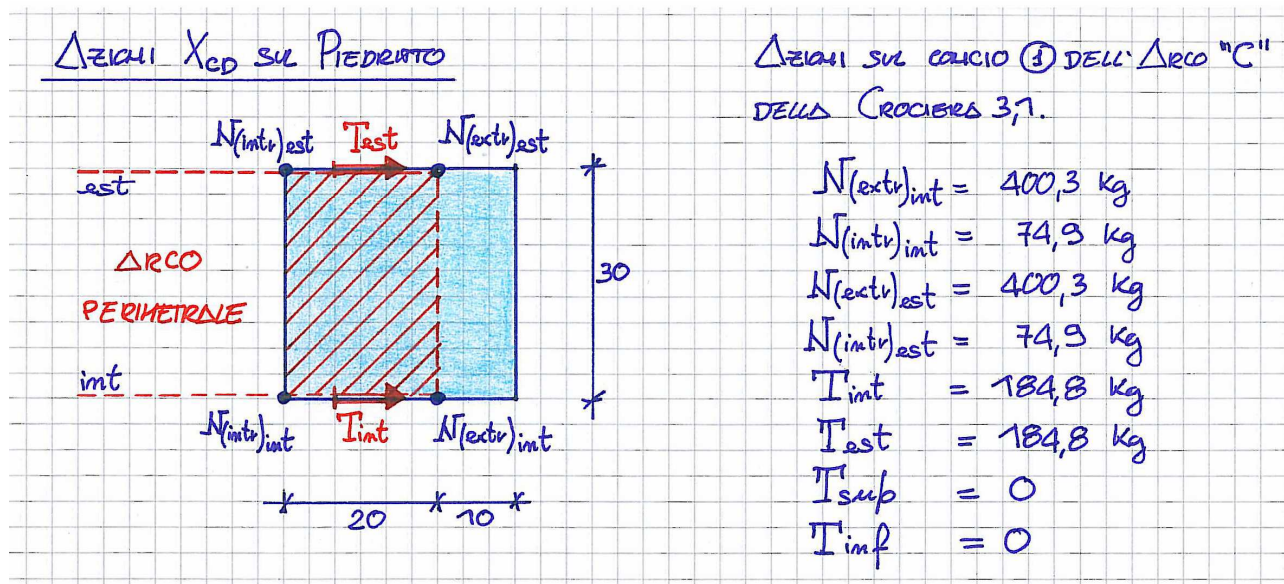 AZIONI XCD SUL PIEDRITTO
N(intr)est
Test
N(extr)est
est
ARCO
PERIMETRALE
30
int
N(intr)int
Tint
N(extr)int
20
10
AZIONI SUL CONCIO 1 DELL'ARCO "C"
DELLA CROCIERA 3,1.
N(extr)int = 400,3 kg
N(intr)int = 74,9 kg
N(extr)est = 400,3 kg
N(intr)est = 74,9 kg
Tint = 184,8 kg
Test = 184,8 kg
Tsup = 0
Tinf = 0